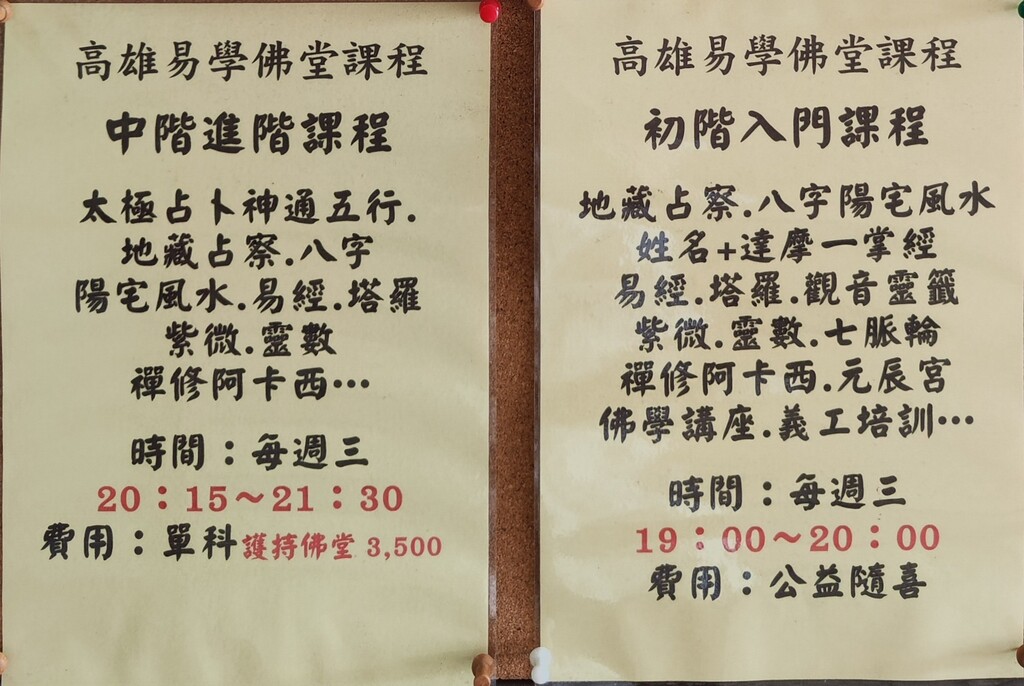 高雄易學佛堂課程
中階進階課程
太極占卜神通五行.
地藏占察.八字
陽宅風水.易經.塔羅
紫微.靈數
禪修阿卡西…
時間：每週三
20：15～21：30
費用：單科護持佛堂 3,500
高雄易學佛堂課程
初階入門課程
地藏占察.八字陽宅風水
姓名+達摩一掌經
易經.塔羅.觀音靈籤
紫微.靈數.七脈輪
禪修阿卡西.元辰宮
佛學講座.義工培訓…
時間：每週三
19：00～20：00
費用：公益隨喜